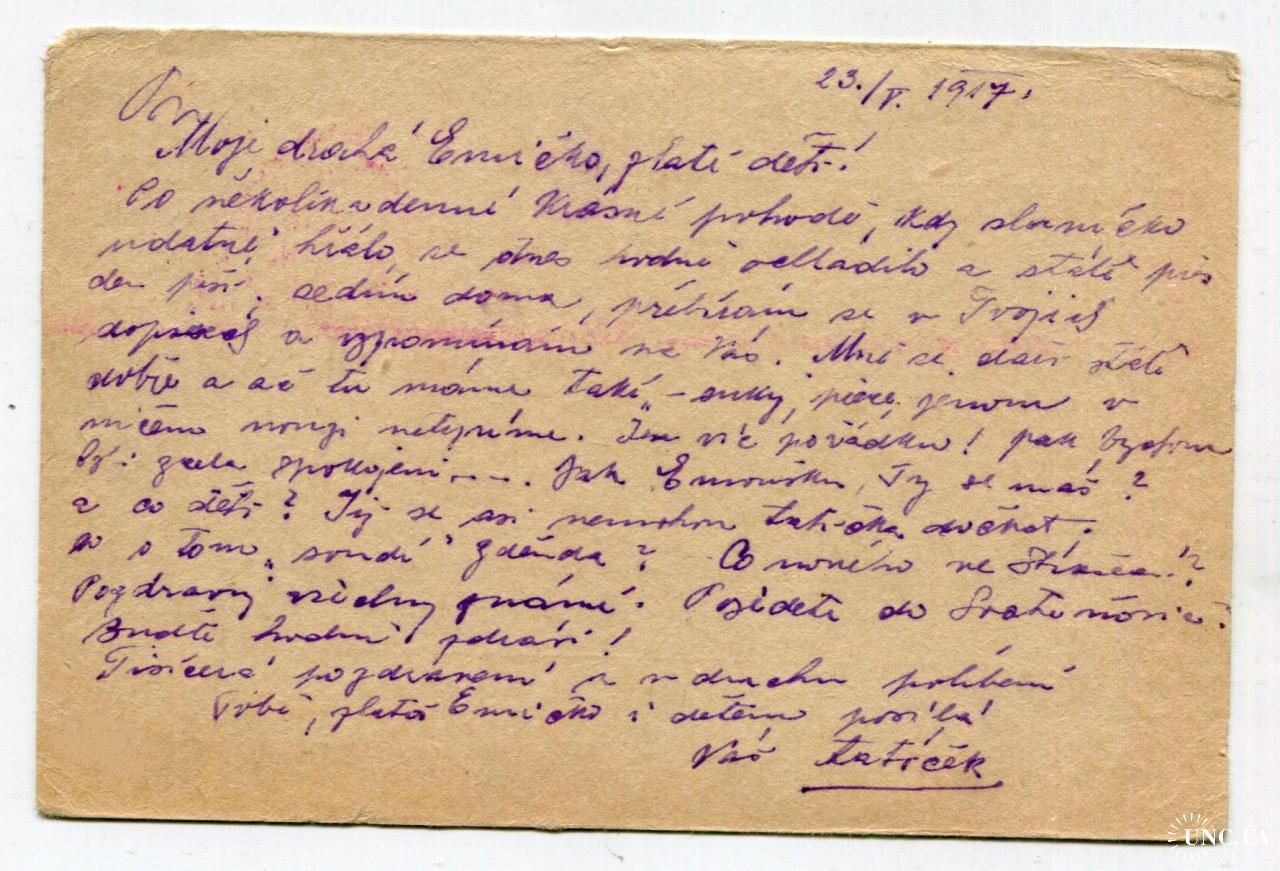 23./V. 1917.
Moje drahá Emičko, zlaté děti!
Po několikadenní krásné pohodě, kdy sluníčko
udatně hřálo, se dnes hodně ochladilo a stále přes
den prší. sedím doma, přebírám se v Tvojich
dopisech a vzpomínám na Vás. Mně se daří stále
dobře a ač tu máme také
ničem nouzi netrpíme. Jen víc pořádku! pak bychom
byli zcela spokojeni.... Jak Ty se máš?
a co děti? Již se asi nemohou tatíčka dočkat.
co o tom „soudí" Zdenda? Co nového ve
Pozdravuj všechny známé. Pojedete do
Buďte hodně zdrávi!
Tisíceré pozdravení a v duchu políbení
Tobě, zlatá Emičko i dětem posílá
Váš tatíček
UNC.UA